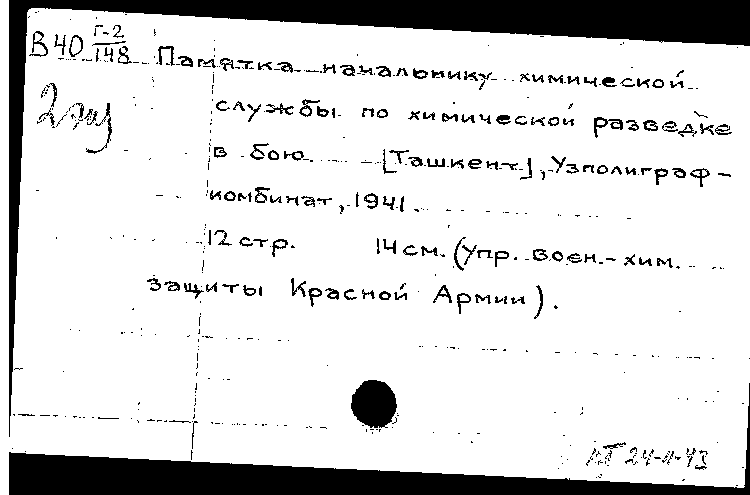 В 40 Г-2/148 Памятка начальнику химической
2 экз
службы по химической разведке
в бою. — [Ташкент], Узполиграф-
комбинат, 1941.
12 стр. 14 см. (Упр. воен.-хим.
защиты Красной Армии).
24-II-43